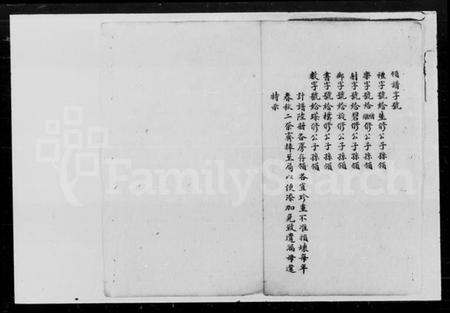 領譜字號
禮字號給生修公子孫領
樂字號給 修公子孫領
射字號給碧修公子孫領
御字號給旋修公子孫領
書字號給樸修公子孫領
數字號給璨修公子孫領
計譜陸册各房存領各宜珍重不准損壞每年
春秋二祭齊捧至局以便添加免致遺漏毋違
特示
FamilySearch